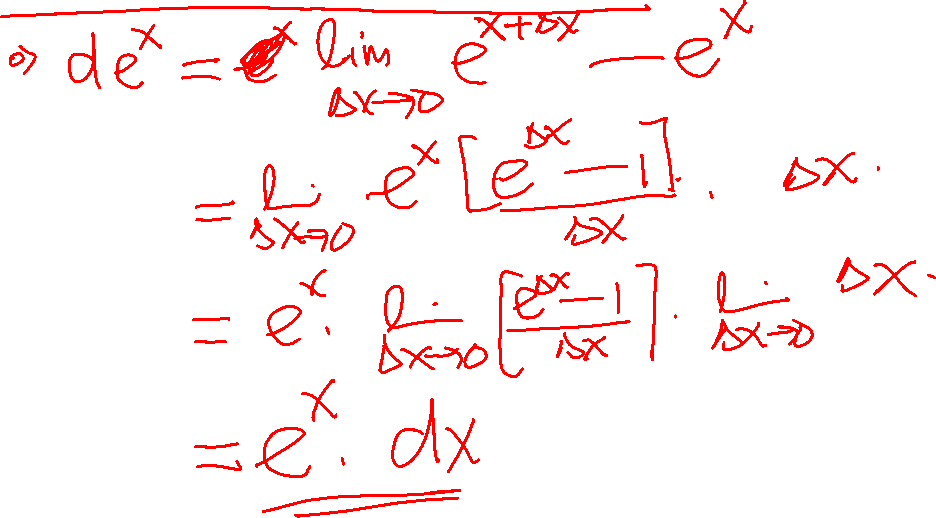 ⇒ de^x = lim_{Δx→0} e^{x+Δx} — e^x
= lim_{Δx→0} e^x [e^{Δx} — 1] / Δx · Δx.
= e^x · lim_{Δx→0} [(e^{Δx} — 1) / Δx] · lim_{Δx→0} Δx.
= e^x · dx